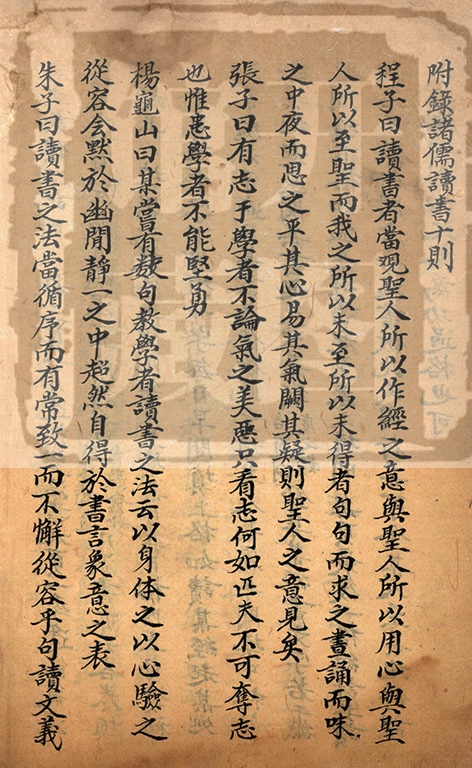 附録諸儒讀書十則
程子曰讀書者當观聖人所以作經之意與聖人所以用心與聖
人所以至聖而我之所以未至所以未得者句句而求之晝誦而味
之中夜而思之平其心易其氣闕其疑則聖人之意見矣
張子曰有志于學者不論氣之美惡只看志何如匹夫不可奪志
也惟患學者不能堅勇
楊龜山曰某嘗有数句教學者讀書之法云以身体之以心驗之
從容会默於幽閒静一之中超然自得於書言象意之表
朱子曰讀書之法當循序而有常致一而不懈從容乎句讀文義